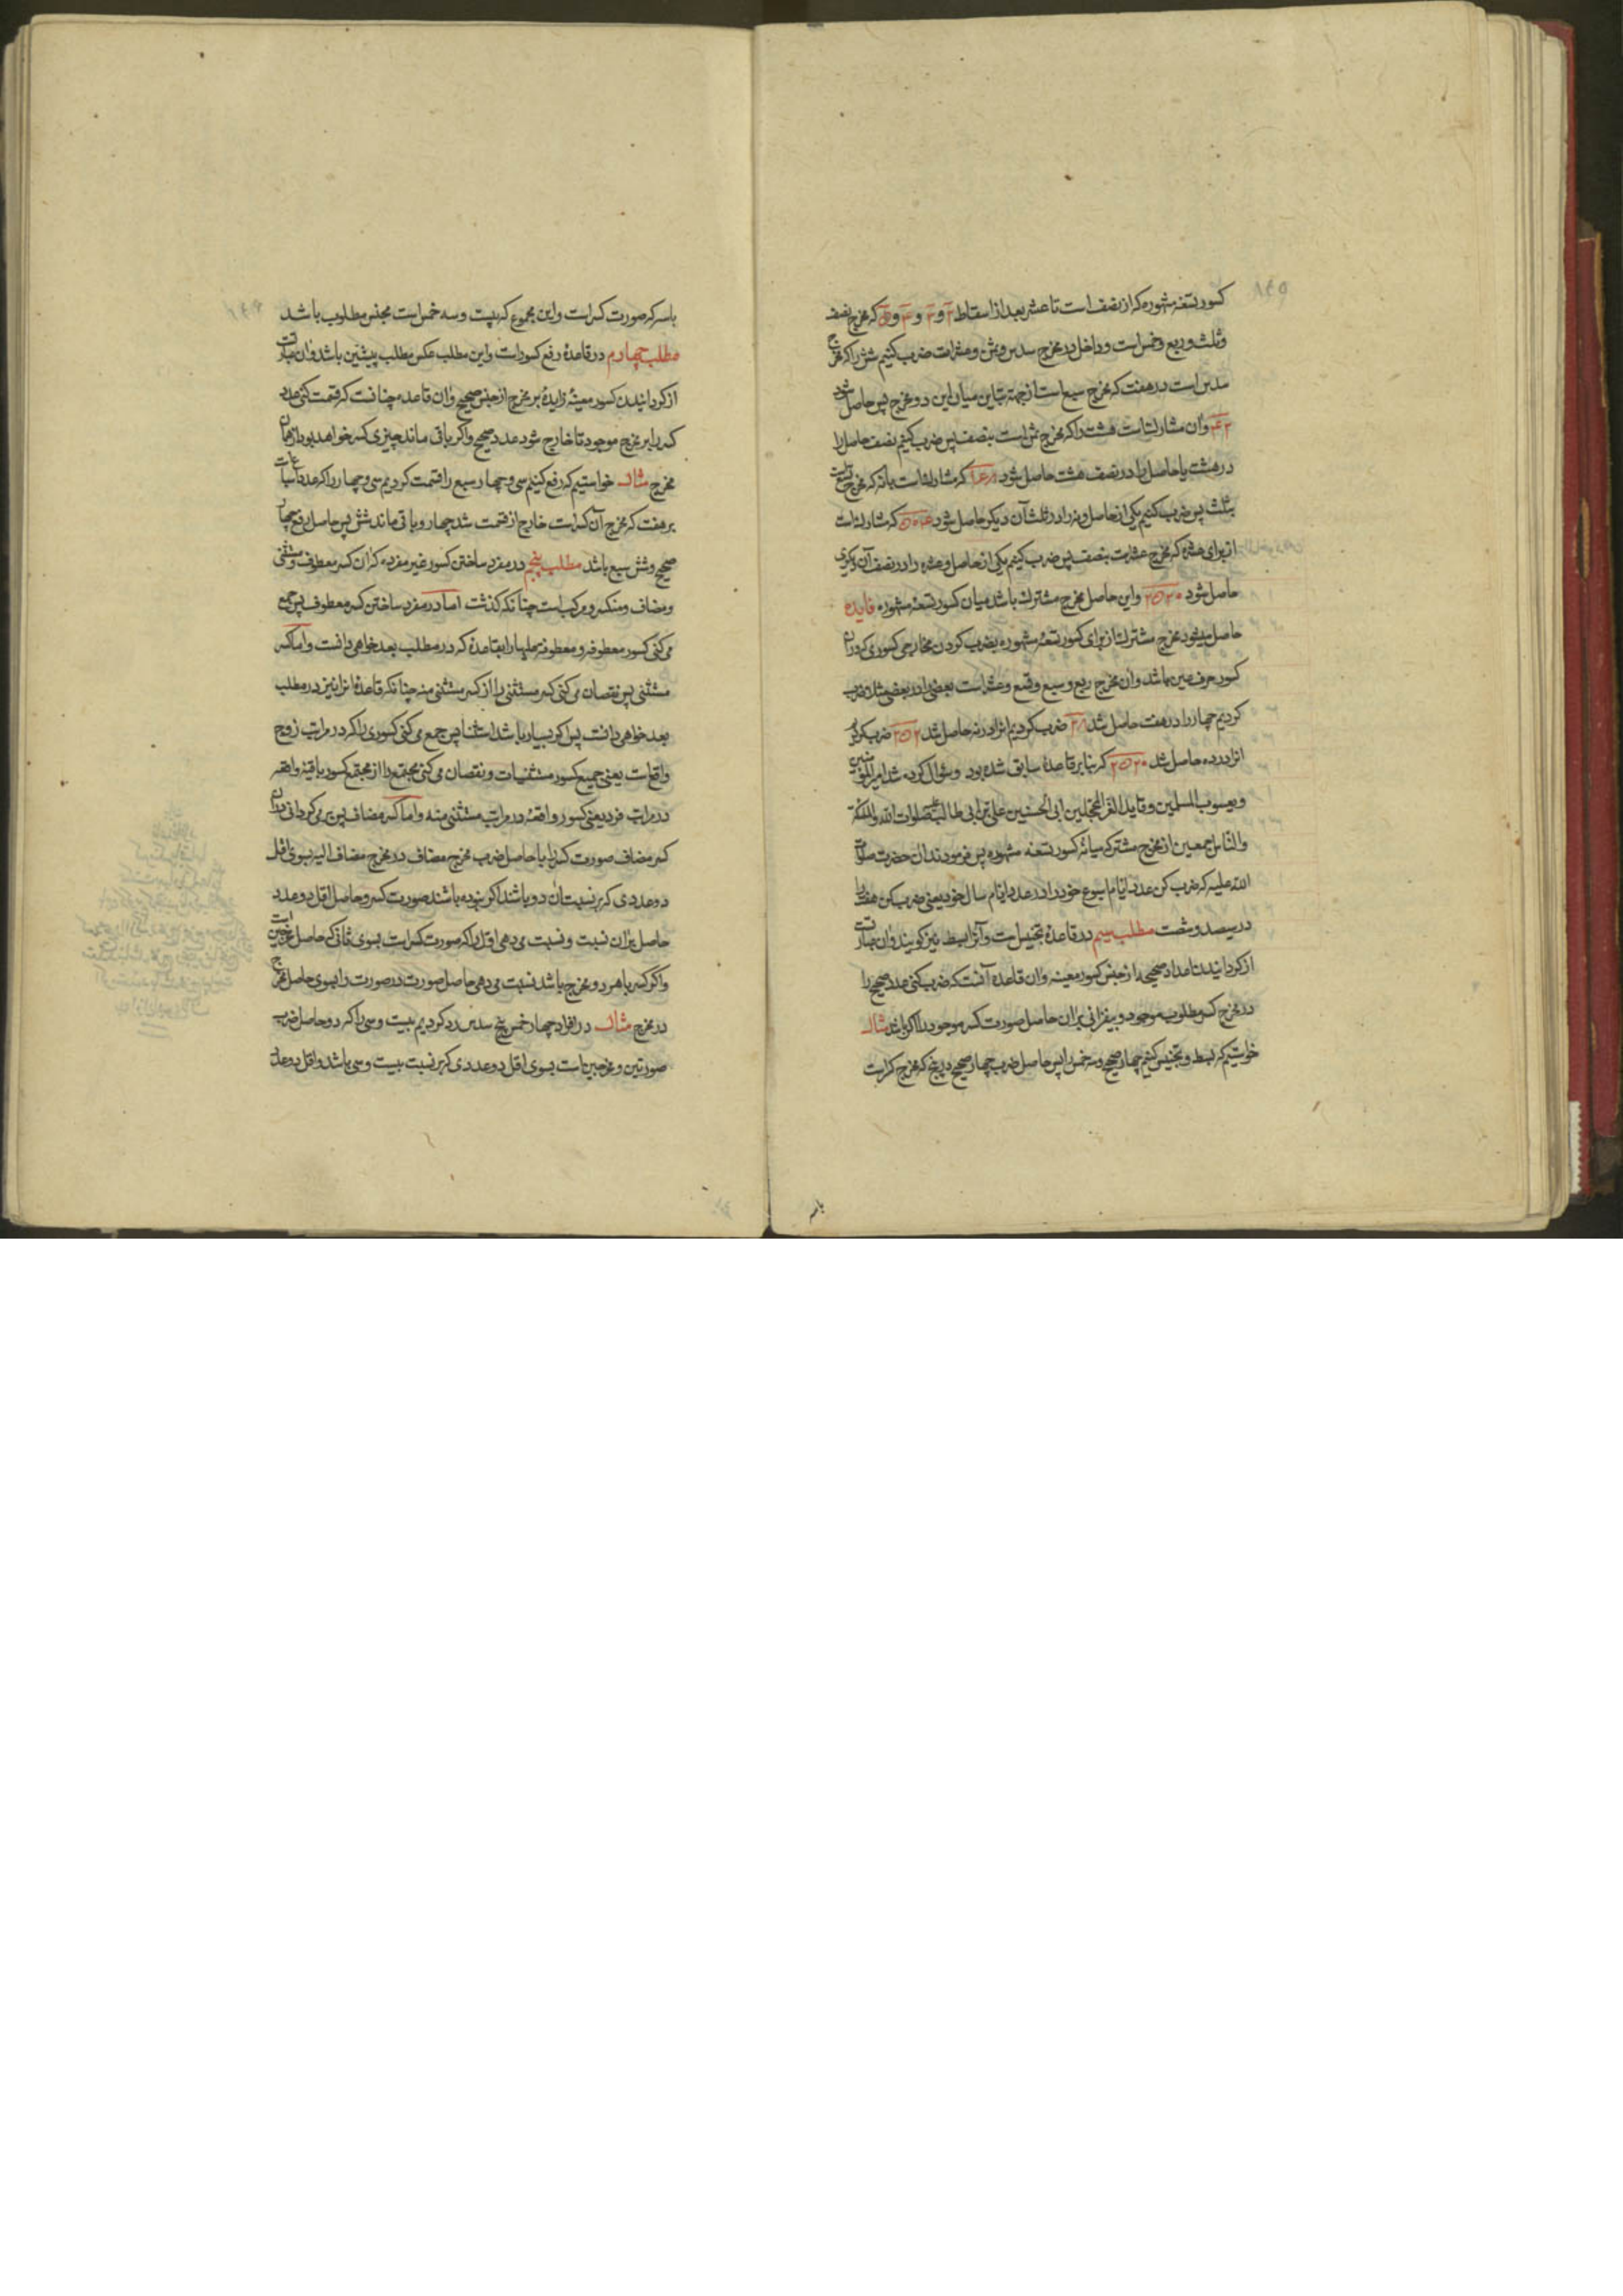 کسور تسعهٔ مشهوره که از نصف است تا عشر بعد از اسقاط ۲ و ۳ و ۴ و ۵ که مخرج نصف
و ثلث و ربع و خمس است و داخل در مخرج سدس و ثمن و عشر است ضرب کنیم شش را که مخرج
سدس است در هفت که مخرج سبع است از جهة تباین میان این دو مخرج پس حاصل شود
۴۲ و آن مشارکست هشت را که مخرج ثمن است بنصف پس ضرب کنیم نصف حاصل را
در هشت یا حاصل را در نصف هشت حاصل شود ۱۶۸ که مشارکست با نه که مخرج تسع است
بثلث پس ضرب کنیم یکی از حاصل و نه را در ثلث آن دیگر حاصل شود ۵۰۴ که مشارکست
از برای عشره که مخرج عشر است بنصف پس ضرب کنیم یکی از حاصل و عشره را در نصف آن دیگری
حاصل شود ۲۵۲۰ و این حاصل مخرج مشترک باشد میان کسور تسعهٔ مشهوره فایده
حاصل میشود مخرج مشترک از برای کسور تسعهٔ مشهوره بضرب کردن مخارجی کسوری که در آن
کسور حرف عین باشد و آن مخرج ربع و سبع و تسع و عشر است بعضی را در بعضی مثلا ضرب
کردیم چهار را در هفت حاصل شد ۲۸ ضرب کردیم آنرا در نه حاصل شد ۲۵۲ ضرب کردیم
آنرا در ده حاصل شد ۲۵۲۰ که بنا بر قاعدهٔ سابق شده بود و سؤال کرده شد امیر المؤمنین
و یعسوب المسلمین و قاید الغر المحجلین ابی الحسنین علی بن ابی طالب علیه صلوات الله و الملئکة
و الناس اجمعین از مخرج مشترک میانهٔ کسور تسعه مشهوره پس فرمودند آن حضرت صلوات
الله علیه که ضرب کن عدد ایام اسبوع خود را در عدد ایام سال خود یعنی ضرب کن هفت را
در سیصد و شصت مطلب سیم در قاعدهٔ تجنیس است و آنرا بسط نیز گویند و آن عبارت
از گردانیدن اعداد صحیحه را از جنس کسور معینه و آن قاعده آنست که ضرب کنی عدد صحیح را
در مخرج کسر مطلوب موجود و بیفزائی بر آن حاصل صورت کسر موجود را اگر باشد مثال
خواستیم که بسط و تجنیس کنیم چهار صحیح و سه خمس را پس حاصل ضرب چهار صحیح در پنج که مخرج کسر است
باسه
باسه که صورت کسر است و این مجموع که بیست و سه خمس است مجنس مطلوب باشد
مطلب چهارم در قاعدهٔ رفع کسور است و این مطلب عکس مطلب پیشین باشد و آن عبارت
از گردانیدن کسور معینهٔ زایده بر مخرج از جنس صحیح و آن قاعده چنانست که قسمت کنی عدد
کسر را بر مخرج موجود تا خارج شود عدد صحیح و اگر باقی ماند چیزی کسر خواهد بود از همان
مخرج مثال خواستیم که رفع کنیم سی و چهار سبع را قسمت کردیم سی و چهار را که عدد اسباعست
بر هفت که مخرج آن کسر است خارج از قسمت شد چهار و باقی ماند شش پس حاصل رفع چهار
صحیح و شش سبع باشد مطلب پنجم در مفرد ساختن کسور غیر مفرده که آن کسر معطوف و مستثنی
و مضاف و منکسر و مرکب است چنانکه گذشت اما در مفرد ساختن کسر معطوف پس جمع
می کنی کسور معطوفه و معطوفه علیها را بقاعدهٔ که در مطلب بعد خواهی دانست و اما کسر
مستثنی پس نقصان می کنی کسر مستثنی را از کسر مستثنی منه چنانکه قاعدهٔ آنرا نیز در مطلب
بعد خواهی دانست پس اگر بسیار باشد استثنا پس جمع می کنی کسوری را که در مراتب زوج
واقع است یعنی جمیع کسور مستثنیات و نقصان می کنی مجتمع را از مجتمع کسور باقیهٔ واقعه
در مراتب فرد یعنی کسور واقعه در مراتب مستثنی منه و اما کسر مضاف پس بر می گردانی در آن
کسر مضاف صورت کسر را با حاصل ضرب مخرج مضاف در مخرج مضاف الیه بسوی اقل
دو عددی که بر نسبت آن دو باشند اگر بوده باشند صورت کسر و حاصل اقل دو عدد
حاصل بر آن نسبت و نسبت می دهی اقل را که صورت کسر است بسوی ثانی که حاصل مخرجین است
و اگر کسر با هر دو مخرج باشد نسبت می دهی حاصل صورت در صورت را بسوی حاصل مخرج
در مخرج مثال در افراد چهار خمس پنج سدس رد کردیم بیست و سی را که دو حاصل ضرب
صورتین و مخرجین است بسوی اقل دو عددی که بر نسبت بیست و سی باشد و اقل دو عدد